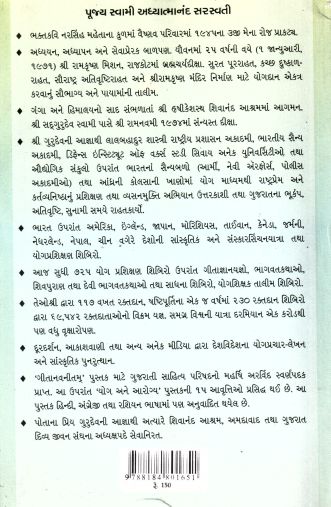 પૂજ્ય સ્વામી અધ્યાત્માનંદ સરસ્વતી
• ભક્તકવિ નરસિંહ મહેતાના કુળમાં વૈષ્ણવ પરિવારમાં ૧૯૪૫ના ૩જી મેના રોજ પ્રાકટ્ય.
• અધ્યયન, અધ્યાપન અને સેવાપ્રેરક બાળપણ. યૌવનમાં ૨૫ વર્ષની વયે (૧ જાન્યુઆરી,
૧૯૭૧) શ્રી રામકૃષ્ણ મિશન, રાજકોટમાં બ્રહ્મચર્યદીક્ષા. સુરત પૂરરાહત, કચ્છ દુષ્કાળ-
રાહત, સૌરાષ્ટ્ર અતિવૃષ્ટિરાહત અને શ્રીરામકૃષ્ણ મંદિર નિર્માણ માટે યોગદાન એકત્ર
કરવાનું સૌભાગ્ય અને પાયામાંની તાલીમ.
• ગંગા અને હિમાલયનો સાદ સંભળાતાં શ્રી ઋષીકેશસ્થ શિવાનંદ આશ્રમમાં આગમન.
શ્રી સદ્ગુરુદેવ સ્વામી પાસે શ્રી રામનવમી ૧૯૭૪માં સંન્યસ્ત દીક્ષા.
• શ્રી ગુરુદેવની આજ્ઞાથી લાલબહાદુર શાસ્ત્રી રાષ્ટ્રીય પ્રશાસન અકાદમી, ભારતીય સૈન્ય
અકાદમી, ડિફેન્સ ઇન્સ્ટિટ્યૂટ ઑફ વર્ક્સ સ્ટડી સિવાય અનેક યુનિવર્સિટીઓ તથા
ઔદ્યોગિક સંકુલો ઉપરાંત ભારતનાં સૈન્યબળો (આર્મી, નેવી ઍરફોર્સ, પોલીસ
અકાદમીઓ) તથા આંધ્રની કોલસાની ખાણોમાં યોગ માધ્યમથી રાષ્ટ્રપ્રેમ અને
કર્તવ્યનિષ્ઠાનું પ્રશિક્ષણ તથા વ્યસનમુક્તિ અભિયાન ઉત્તરકાશી તથા ગુજરાતના ભૂકંપ,
અતિવૃષ્ટિ, સુનામી સમયે રાહતકાર્યો.
• ભારત ઉપરાંત અમેરિકા, ઇંગ્લેન્ડ, જાપાન, મોરિશિયસ, તાઈવાન, કેનેડા, જર્મની,
નેધરલેન્ડ, નેપાલ, ચીન વગેરે દેશોની સાંસ્કૃતિક અને સંસ્કારસિંચનયાત્રા તથા
યોગપ્રશિક્ષણ શિબિરો.
• આજ સુધી ૭૨૫ યોગ પ્રશિક્ષણ શિબિરો ઉપરાંત ગીતાજ્ઞાનયજ્ઞો, ભાગવતકથાઓ,
શિવપુરાણ તથા દેવી ભાગવતકથાઓ તથા સાધના શિબિરો, યોગશિક્ષક તાલીમ શિબિરો.
• તેઓશ્રી દ્વારા ૧૧૭ વખત રક્તદાન, ષષ્ટિપૂર્તિના એક જ વર્ષમાં ૨૩૦ રક્તદાન શિબિરો
દ્વારા ૬૯,૫૪૨ રક્તદાતાઓનો વિક્રમ યજ્ઞ. સમગ્ર વિશ્વની યાત્રા દરમિયાન એક કરોડથી
પણ વધુ વૃક્ષારોપણ.
• દૂરદર્શન, આકાશવાણી તથા અન્ય અનેક મીડિયા દ્વારા દેશવિદેશના યોગપ્રચાર-લેખન
અને સાંસ્કૃતિક પુનરુત્થાન.
• 'ગીતાનવનીતમ્' પુસ્તક માટે ગુજરાતી સાહિત્ય પરિષદનો મહર્ષિ અરવિંદ સ્વર્ણપદક
પ્રાપ્ત. આ ઉપરાંત 'યોગ અને આરોગ્ય' પુસ્તકની ૧૫ આવૃત્તિઓ પ્રસિદ્ધ થઈ છે. આ
પુસ્તક હિન્દી, અંગ્રેજી તથા રશિયન ભાષામાં પણ અનુવાદિત થયેલ છે.
• પોતાના પ્રિય ગુરુદેવની આજ્ઞાથી અત્યારે શિવાનંદ આશ્રમ, અમદાવાદ તથા ગુજરાત
દિવ્ય જીવન સંઘના અધ્યક્ષપદે સેવાનિરત.
9 788184 801651
રૂ. 150